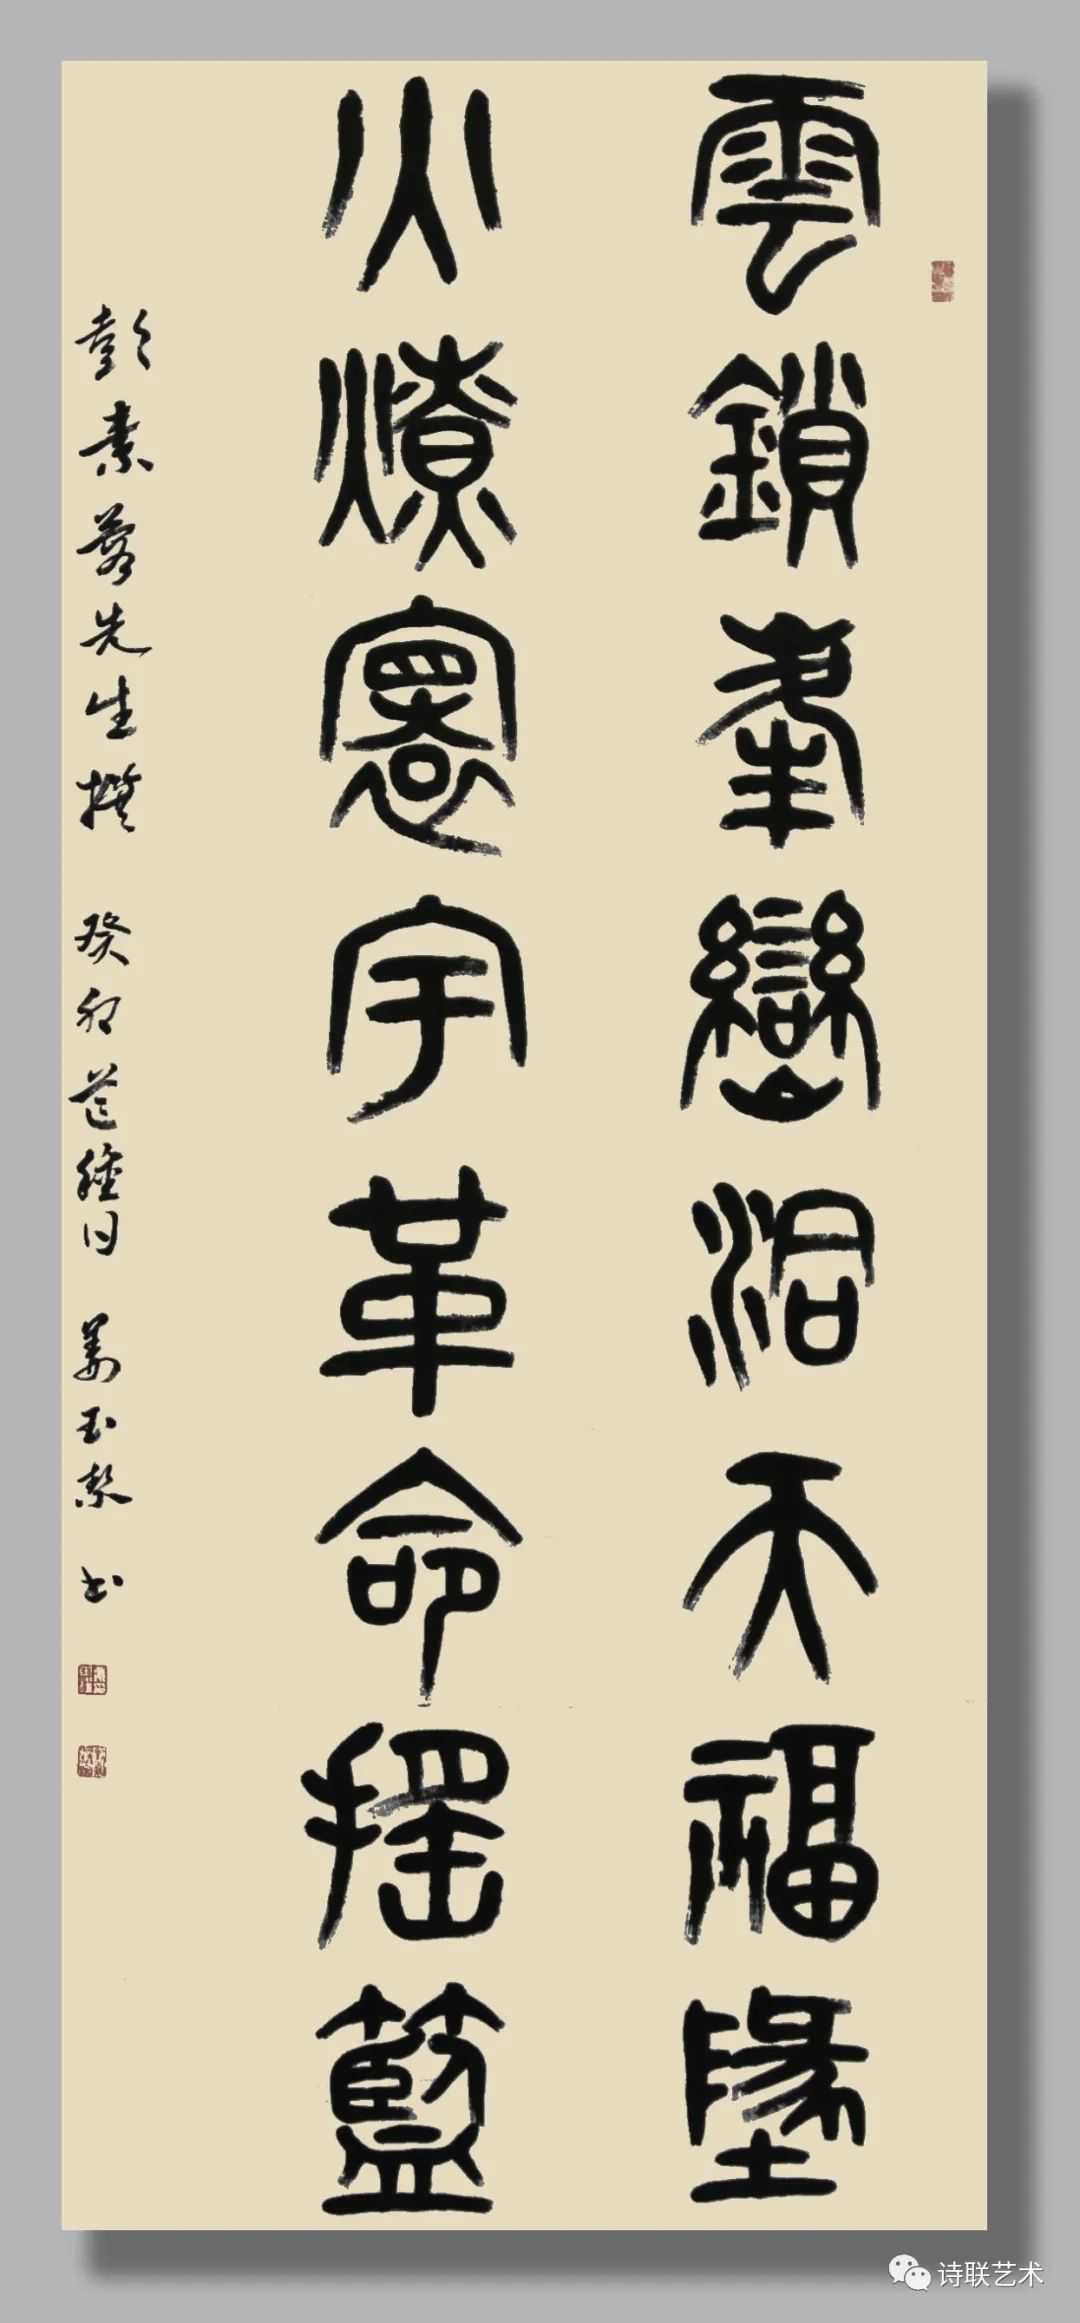 雲鎖峯巒沿天福墬
火燎寰宇革命搖籃
彭素蓉先生撰 癸卯芒種日 姜玉黎 书
诗联艺术